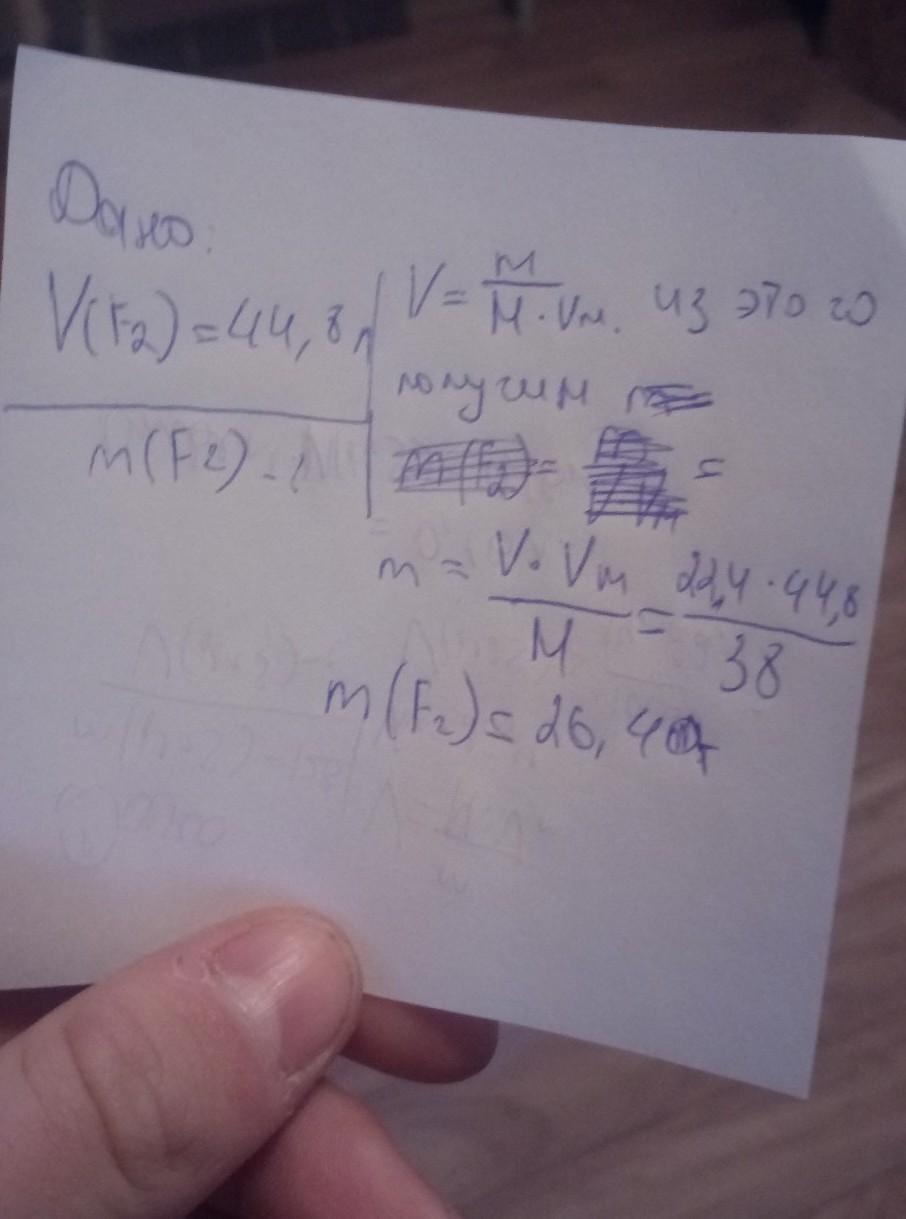 Дано:
V(F2)=44,8л
m(F2)-?
V= m/M·Vм. из этого
получим
=
m = V·Vм/M = 22,4·44,8/38
m(F2)= 26,40г